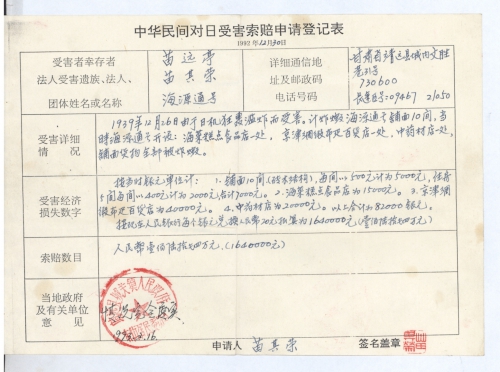 中华民间对日受害索赔申请登记表
1992年12月30日
受害者幸存者
法人受害遗族、法人、
团体姓名或名称
苗远亭
苗其荣
海源通号
详细通信地
址及邮政码
电话号码
甘肃省靖远县城内文胜
巷31号
730600
09467 21050
受害详细
情况
1939年12月26日由于日机狂轰滥炸而受害。计炸毁海源通号铺面10间,当
时海源通号开设:海菜糕点食品店一处,京津绸缎布疋百货店一处,中药材店一处,
铺面货物全部被炸毁。
受害经济
损失数字
按当时银元单位计:1.铺面10间(砖木结构),每间以500元计为5000元,住房
5间每间以400元计为2000元合计7000元。2.海菜糕点食品店为15000元。3.京津绸
缎布疋百货店为40000元。4.中药材店为20000元。以上合计为82000银元。
按现在人民银行每个银元兑换人民币20元折算为1640000元(壹佰陆拾肆万元)
索赔数目
人民币壹佰陆拾肆万元。(1640000元)
当地政府
及有关单位
意见
情况完全真实
申请人 苗其荣
签名盖章